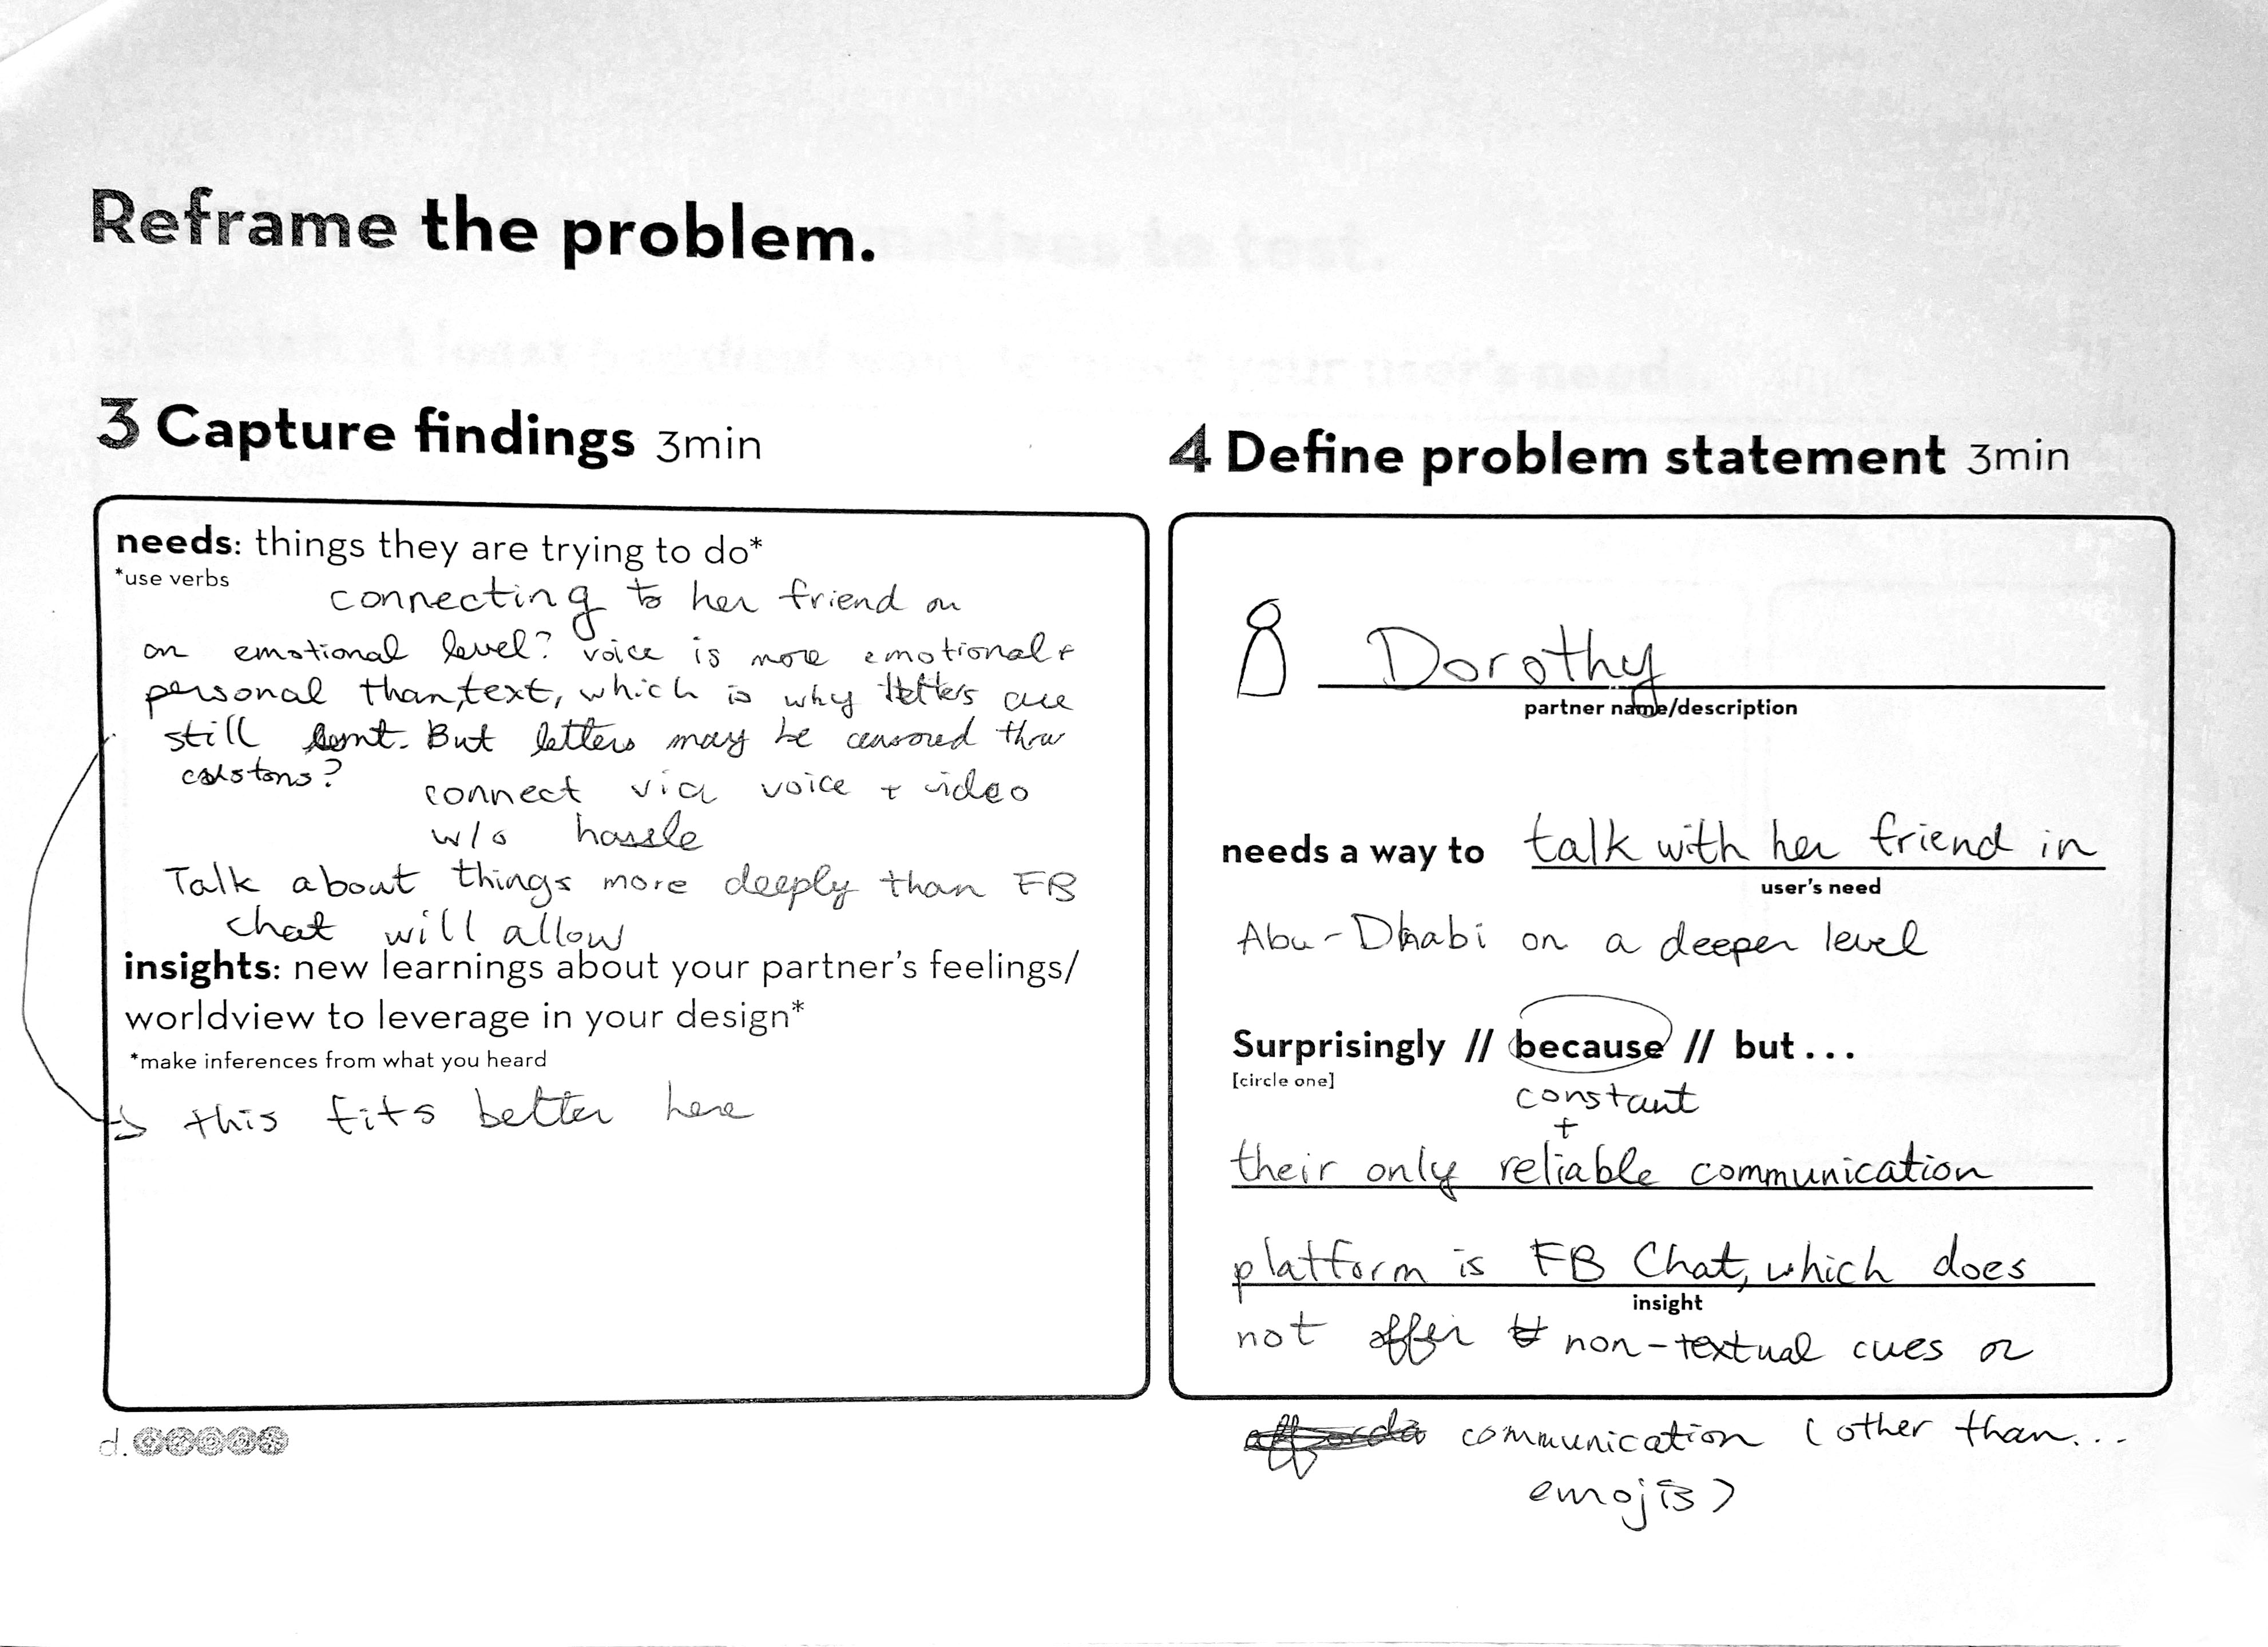 Reframe the problem.
3 Capture findings 3min
needs: things they are trying to do*
*use verbs
connecting to her friend on
an emotional level? voice is more emotional +
personal than text, which is why letters are
still sent. But letters may be censored thru
customs?
connect via voice + video
w/o hassle
Talk about things more deeply than FB
chat will allow
insights: new learnings about your partner's feelings/
worldview to leverage in your design*
*make inferences from what you heard
this fits better here
d.
4 Define problem statement 3min
Dorothy
partner name/description
needs a way to talk with her friend in
user's need
Abu-Dhabi on a deeper level
Surprisingly // because // but...
[circle one]
constant
+
their only reliable communication
platform is FB Chat, which does
insight
not offer non-textual cues or
communication (other than...
emojis)